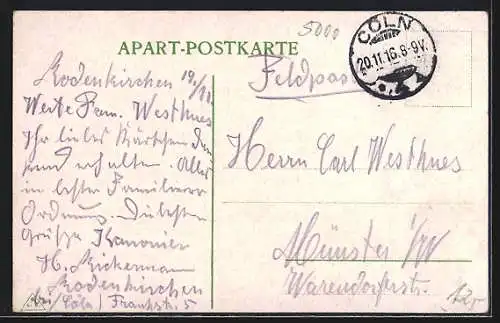 5000
APART-POSTKARTE
CÖLN
20.11.16. 8-9V.
Feldpost
Rodenkirchen 19/11.
Werte Fam. Westhues
Ihr liebes Kärtchen
erhalten. Alles
in bester
Ordnung. Die besten
Grüße Kanonier
H. Rickermann
Rodenkirchen
Cöln / Frankstr. 5
Herrn Carl Westhues
Münster i/W
Warendorferstr.
12,-